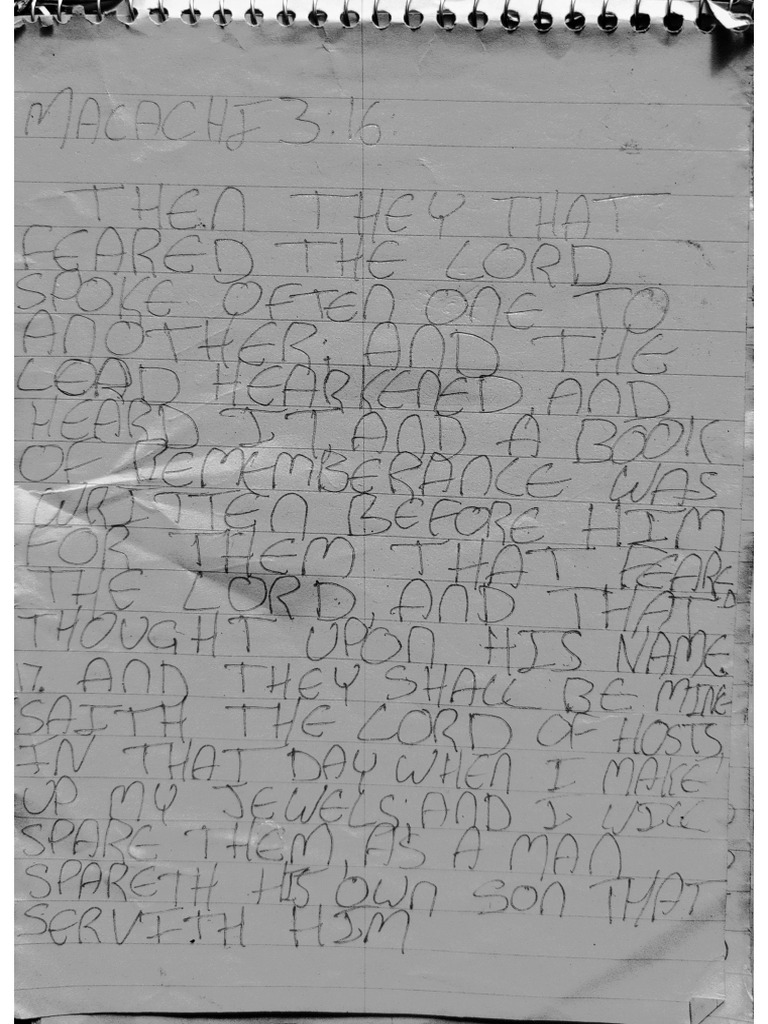 MALACHI 3:16
THEN THEY THAT
FEARED THE LORD
SPOKE OFTEN ONE TO
ANOTHER: AND THE
LORD HEARKENED, AND
HEARD IT, AND A BOOK
OF REMEMBERANCE WAS
WRITTEN BEFORE HIM
FOR THEM THAT FEARED
THE LORD, AND THAT
THOUGHT UPON HIS NAME.
17. AND THEY SHALL BE MINE
SAITH THE LORD OF HOSTS
IN THAT DAY WHEN I MAKE
UP MY JEWELS; AND I WILL
SPARE THEM, AS A MAN
SPARETH HIS OWN SON THAT
SERVITH HIM